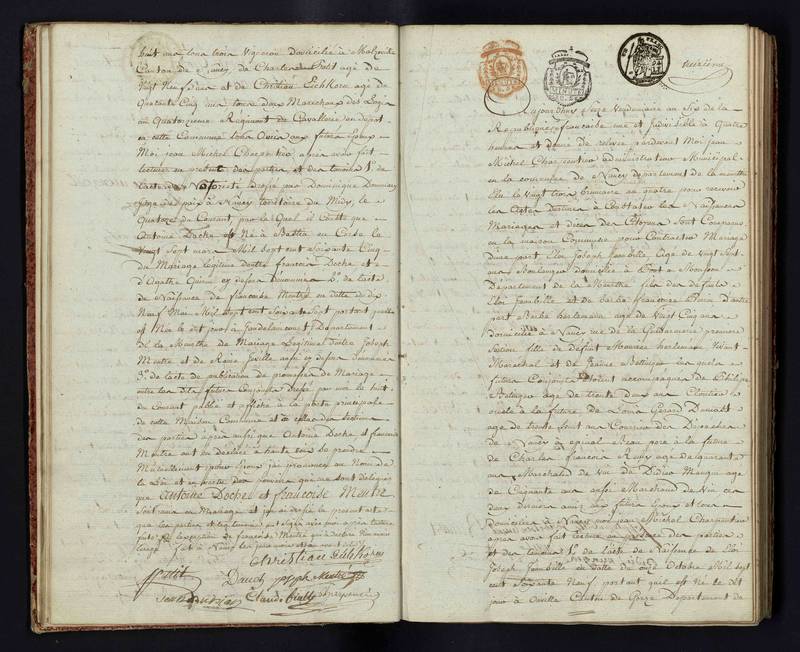 huit ans tous trois Vigneron domicilié à Malzéville
Canton de Nancy, de Charles Petit agé de
Vingt Neuf ans et de Chrétien Eichkorn agé de
Quarante Cinq ans tous deux Marechaux des Logis
au Quatorzieme Régiment de Cavallerie en dépôt
en cette Commune tous amis aux futurs Epoux
Moi jean Michel Charpentier après avoir fait
lecture en présence des parties et des temoins 1° de
l'acte de Notoriété dressé par Dominique
juge de paix à Nancy territoire du Midy, le
Quatorze du Courant, par le quel il conste que
Antoine Doche est Né à Bastia en Corse le
Vingt Sept mars Mil Sept cent Soixante Cinq
du Mariage légitime d'entre françois Doche et
d'Agathe 2° de l'acte
de Naissance de françoise Mentré en datte du dix
Neuf Mai Mil Sept cent Soixante Sept portant quelle
est Née le dit jour à Département
de la Meurthe du Mariage Légitime d'entre Joseph
Mentré et de Marie
3° de l'acte de publication de promesses de Mariage
entre les dits futurs Conjoints dressé par moi le huit
du courant publié et affiché à la porte principale
de cette Maison Commune et
des parties après aussi que Antoine Doche et françoise
Mentré ont eu déclaré à haute voix se prendre
Mutuellement pour Epoux j'ai prononcé au Nom de
la Loi et en vertu des pouvoirs qui me sont délégués
que Antoine Doche et françoise Mentré
Sont unis en Mariage et j'ai dressé le présent acte
que les parties et les temoins ont signé avec moi après lecture
faite à l'exception de françoise Mentré qui a déclaré
fait à Nancy les jour mois et an avant dits
Christian Eichkorn
Petit
Doch joseph Mentré
Claude
Aujourdhuy Seize Vendemiaire an Six de la
Republique française une et Indivisible à Quatre
heures et demie de relevée pardevant Moi jean
Michel Charpentier administrateur Municipal
en la commune de Nancy departement de la meurthe
Elu le vingt trois brumaire an quatre pour recevoir
les Actes destinés à Constater les Naissances
Mariages et décès des Citoyens Sont Comparus
en la maison Commune pour Contracter Mariage
d'une part Eloi Joseph Jambille Age de Vingt Sept
ans Boulanger domicilié à Pont a Mousson
Departement de la Meurthe fils des défunts
Eloi Jambille et de barbe françoise d'autre
part Barbe herlement age de Vingt Cinq ans
domiciliée à Nancy rue de la Gendarmerie premiere
Section fille de défunt Maurice herlement Vivant
Marechal et de Jeanne les quels
futurs Conjoints etoient accompagnés de Philippe
age de trente deux ans Cloutier
oncle à la future de Louis Gerard
age de trente sept ans Courrier des Depeches
de Nancy à epinal Beau pere à la future
de Charles francois age de quarante
ans Marchand de Vin de Didier Mangin age
de Cinquante ans aussi Marchand de Vin ces
deux derniers amis aux futurs Epoux et tous
domiciliés à Nancy moi jean Michel Charpentier
apres avoir fait lecture en présence des parties
et des temoins 1° de l'acte de Naissance de Eloi
Joseph Jambille en datte du onze Octobre Mil Sept
cent Soixante Neuf portant quil est Né le dit
jour à Département de